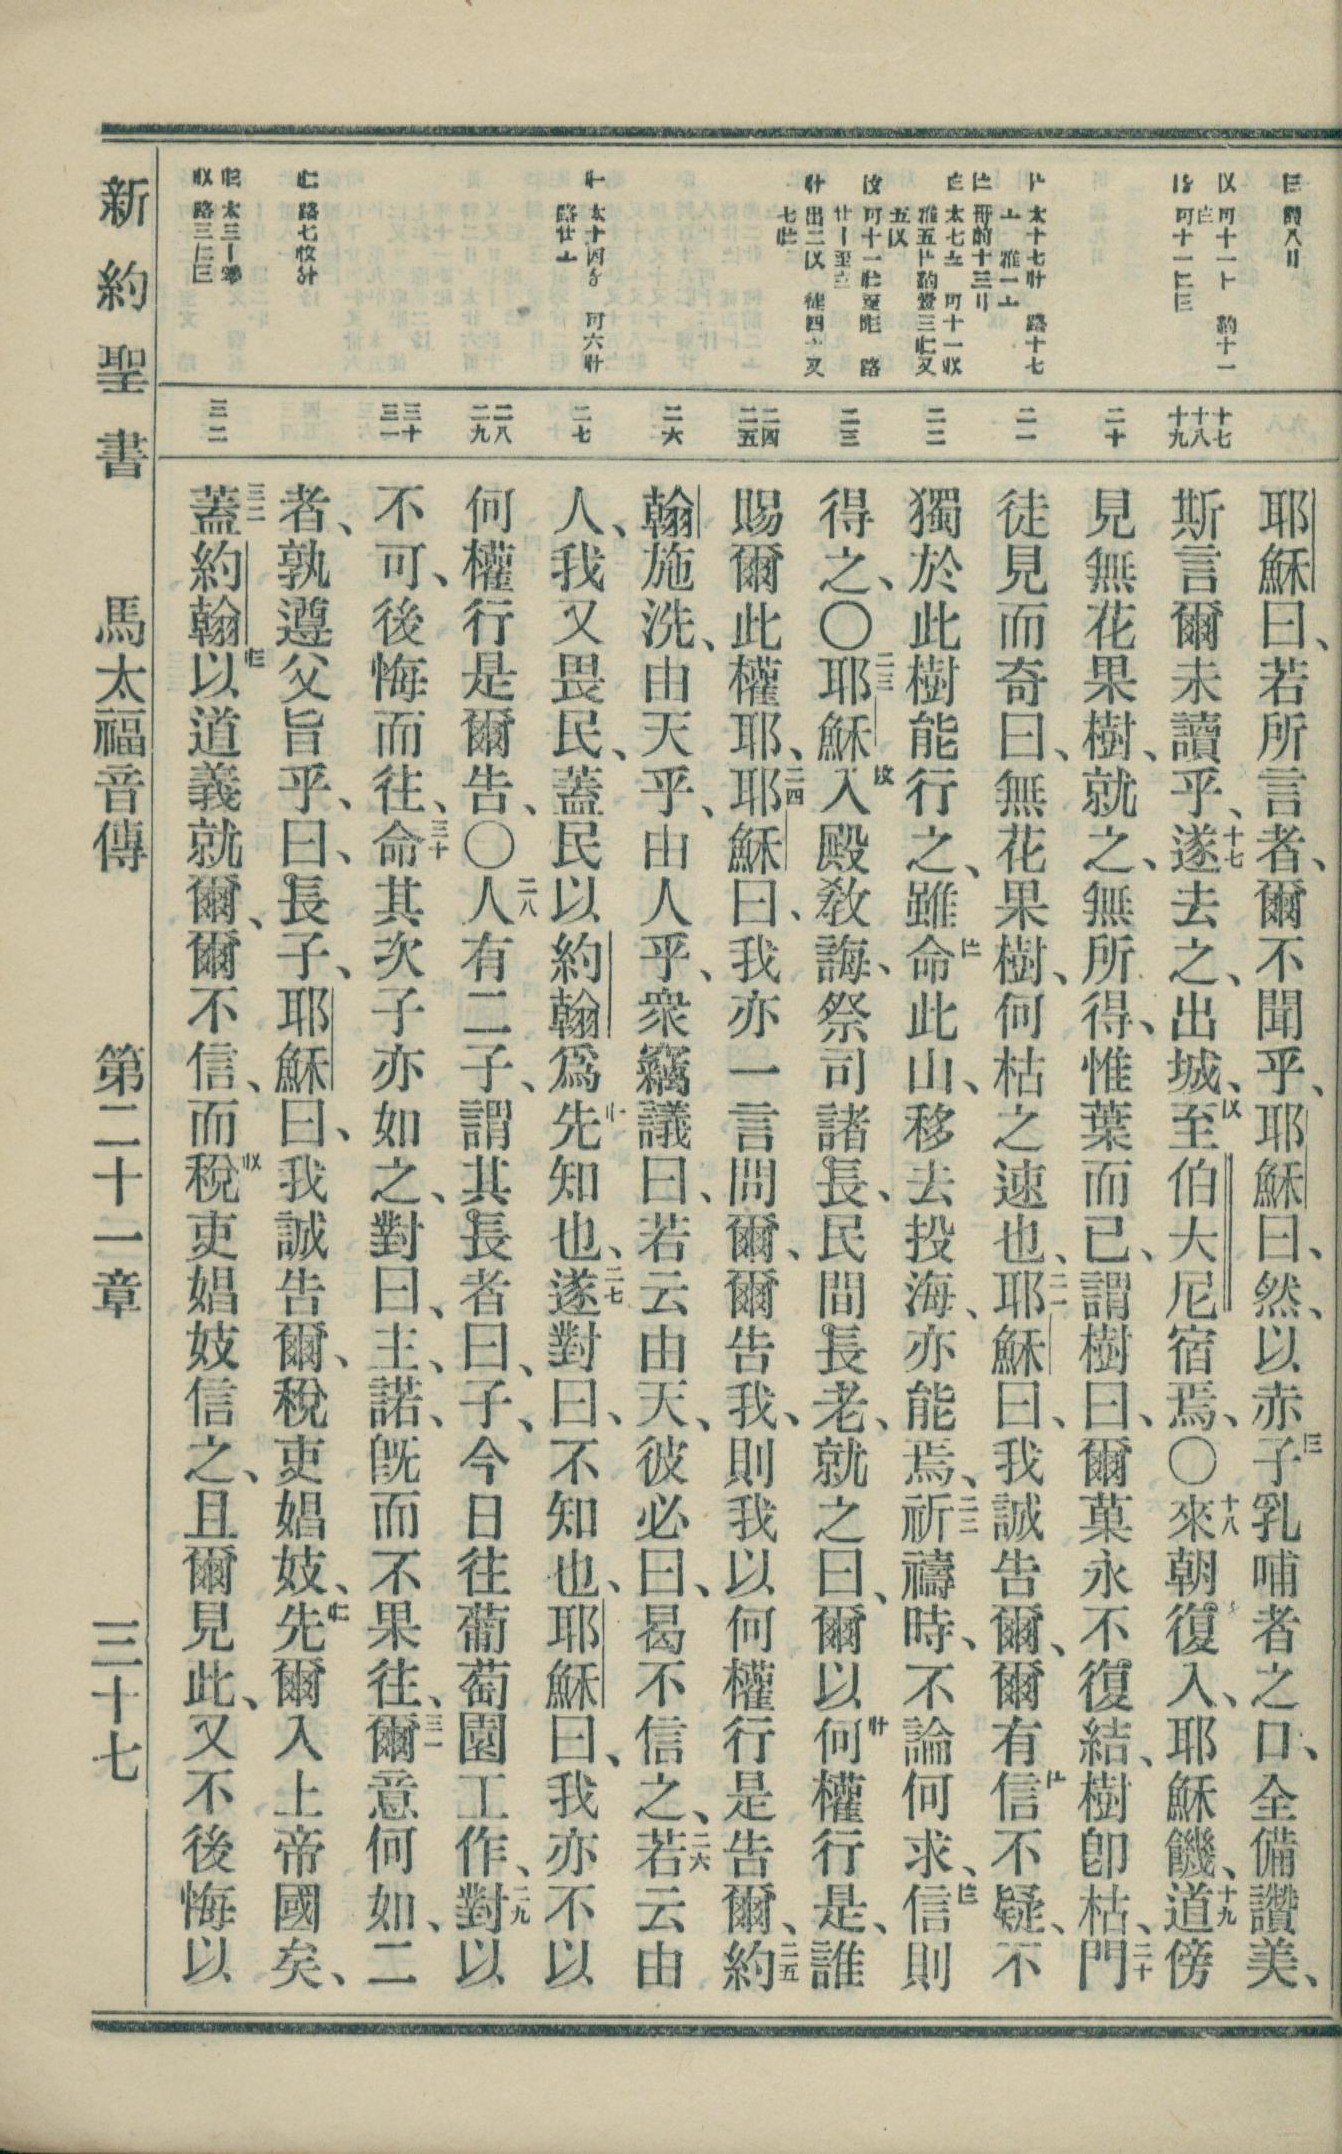 耶穌曰、若所言者、爾不聞乎、耶穌曰、然、以赤子乳哺者之口、全備讚美、
斯言爾未讀乎、十七遂去之、出城、至伯大尼宿焉、〇十八來朝復入、耶穌饑、十九道傍
見無花果樹、就之、無所得、惟葉而已、謂樹曰、爾菓永不復結、樹卽枯、二十門
徒見而奇曰、無花果樹、何枯之速也、二一耶穌曰、我誠告爾、爾有信不疑、不
獨於此樹能行之、雖命此山、移去投海、亦能焉、二二祈禱時、不論何求、信則
得之、〇二三耶穌入殿敎誨、祭司諸長、民間長老、就之曰、爾以何權行是、誰
賜爾此權耶、二四耶穌曰、我亦一言問爾、爾告我、則我以何權行是告爾、二五約
翰施洗、由天乎、由人乎、衆竊議曰、若云由天、彼必曰、曷不信之、二六若云由
人、我又畏民、蓋民以約翰爲先知也、二七遂對曰、不知也、耶穌曰、我亦不以
何權行是爾告、〇二八人有二子、謂其長者曰、子、今日往葡萄園工作、二九對以
不可、後悔而往、三十命其次子亦如之、對曰、主、諾、旣而不果往、三一爾意何如、二
者、孰遵父旨乎、曰、長子、耶穌曰、我誠告爾、稅吏娼妓、先爾入上帝國矣、
三二蓋約翰以道義就爾、爾不信、而稅吏娼妓信之、且爾見此、又不後悔以
新約聖書 馬太福音傳 第二十一章 三十七
十七
十八
十九
二十
二一
二二
二三
二四
二五
二六
二七
二八
二九
三十
三一
三二